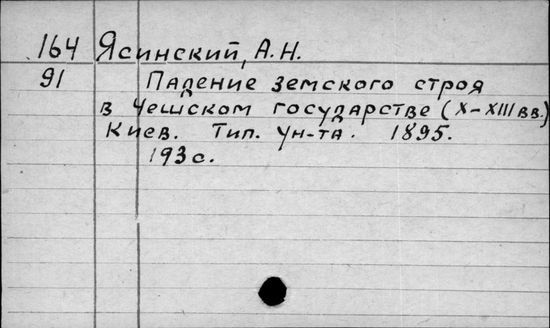 164 Ясинский, А.Н.
91 Падение земского строя
в Чешском государстве (X-XIII вв.)
Киев. Тип. Ун-та. 1895.
193 с.